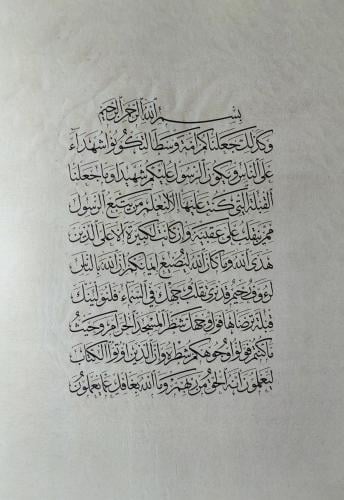 بسم الله الرحمن الرحيم
وكذلك جعلناكم أمة وسطا لتكونوا شهداء
على الناس ويكون الرسول عليكم شهيدا وما جعلنا
القبلة التي كنت عليها إلا لنعلم من يتبع الرسول
ممن ينقلب على عقبيه وإن كانت لكبيرة إلا على الذين
هدى الله وما كان الله ليضيع إيمانكم إن الله بالناس
لرءوف رحيم قد نرى تقلب وجهك في السماء فلنولينك
قبلة ترضاها فول وجهك شطر المسجد الحرام وحيث
ما كنتم فولوا وجوهكم شطره وإن الذين أوتوا الكتاب
ليعلمون أنه الحق من ربهم وما الله بغافل عما يعملون